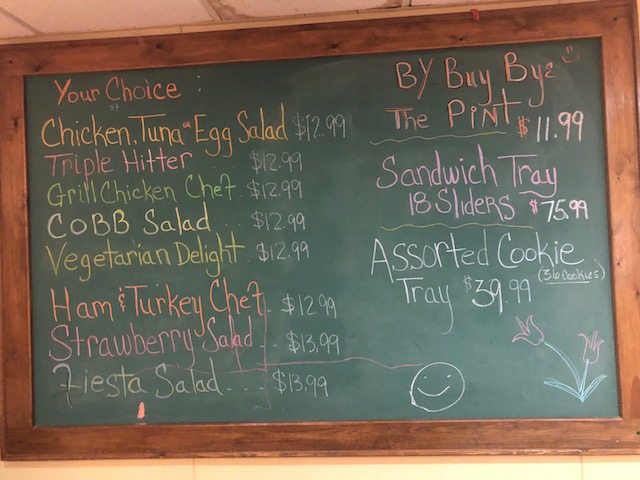 Your Choice :
of
Chicken, Tuna or Egg Salad $12.99
Triple Hitter $12.99
Grill Chicken Chef $12.99
COBB Salad $12.99
Vegetarian Delight $12.99
Ham & Turkey Chef $12.99
Strawberry Salad $13.99
Fiesta Salad $13.99
BY Buy Bye
The PiNT $11.99
Sandwich Tray
18 Sliders $75.99
Assorted Cookie
(36 Cookies)
Tray $39.99